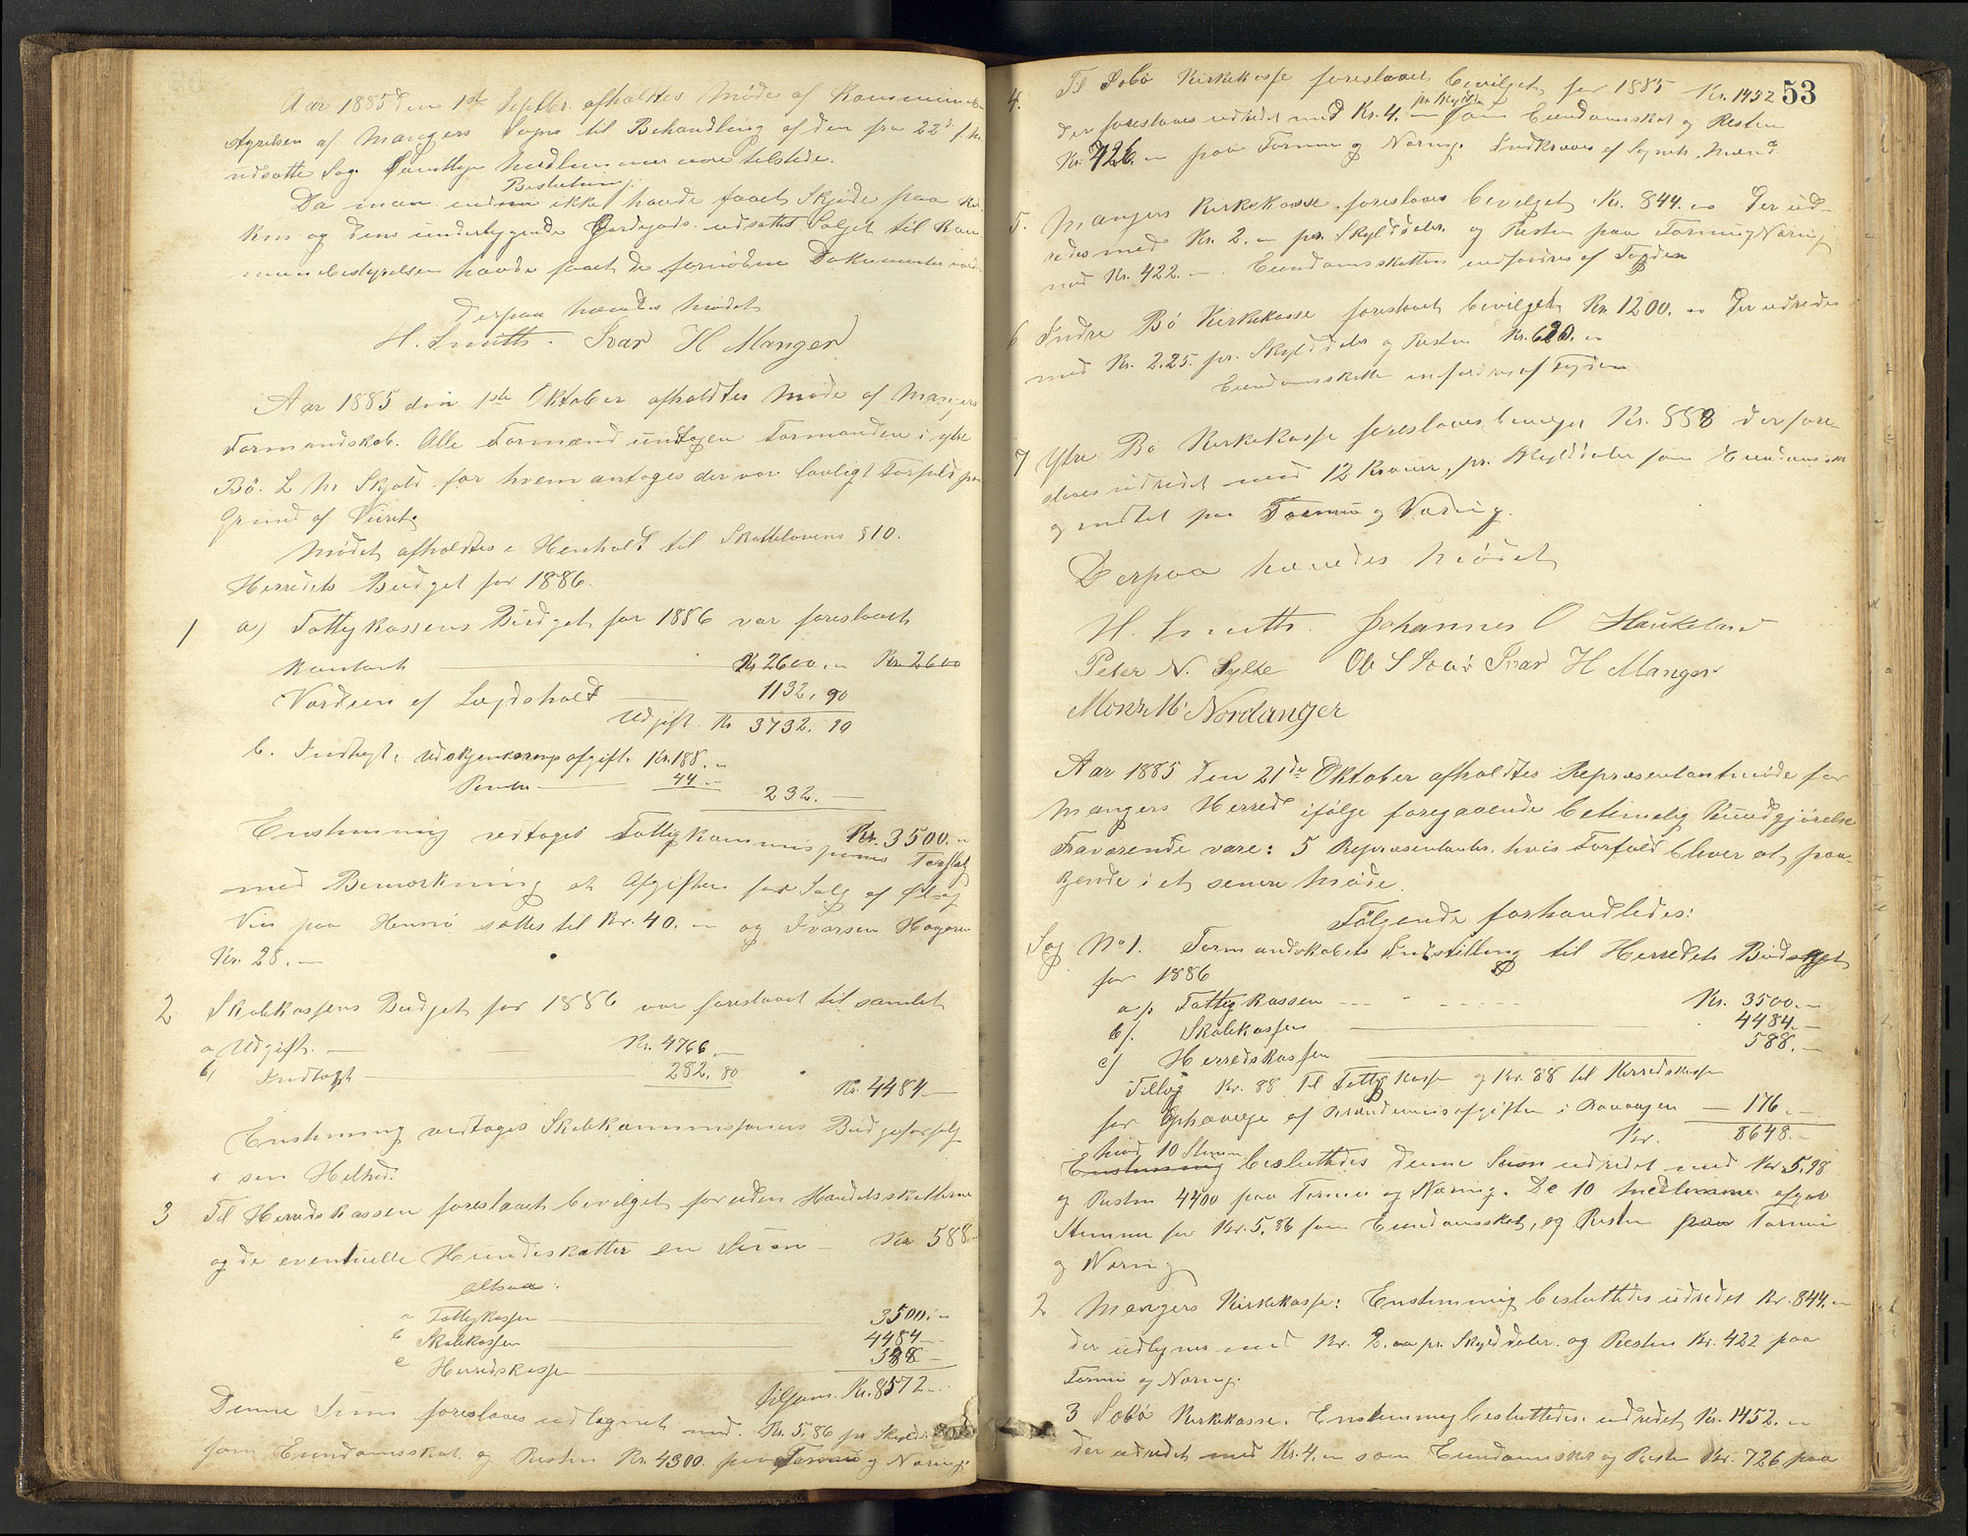 Aar 1885 den 1ste Septbr. afholdtes Møde af Kommunebe-
styrelsen af Mangers Sogn til Behandling af den fra 22de f. M.
udsatte Sag. Samtlige Medlemmer vare tilstede.
Beslutning:
Da man endnu ikke havde faaet Skjøde paa Kir-
ken og dens underliggende Jordgods udsattes Salget til Kom-
munebestyrelsen havde faaet de fornødne Dokumenter
Derpaa hævedes Mødet
H. Smith. Ivar H Manger
Aar 1885 den 1ste Oktober afholdtes Møde af Mangers
Formandskab. Alle Formænd undtagen Formanden i ytre
Bø. L M Skjold for hvem antoges der var lovligt Forfald paa
Grund af Veiret.
Mødet afholdtes i Henhold til Skattelovens § 10.
Herredets Budget for 1886.
1 a) Fattigkassens Budget for 1886 var foreslaaet
Kontant Kr 2600. Kr. 2600
Værdien af Lægdshold 1132, 90
Udgift Kr 3732. 90
b. Indtægt: Udskjænkningsafgift Kr. 188.
Renter 44
232.
Kr. 3500.
Enstemmig vedtoges Fattigkommissionens Forslag
med Bemærkning at Afgiften for Salg af Øl og
Vin paa Hennø sættes til Kr. 40. og Ivarsen Hagøren
Kr. 28.
2 Skolekassens Budget for 1886 var foreslaaet til samlet
a, Udgift. Kr. 4766
b, Indtægt 282, 80
Kr. 4484
Enstemmig vedtoges Skolekommissionens Budgetforslag
i sin Helhed.
3 Til Herredskassen foreslaaet bevilget foruden Handelsskatterne
og de eventuelle Hundeskatter en Sum Kr 588
altsaa:
a Fattigkassen 3500.
b Skolekassen 4484
c Herredskassen 588
Tilsam. Kr. 8572
Denne Sum foreslaaes udlignet med Kr. 5,86 pr Skylddaler
som Eiendomsskat og Resten Kr. 4300. paa Formue og Næring.
53
4. Til Sæbø Kirkekasse foreslaaet bevilget for 1885 Kr. 1452
pr Skyldd.
der foreslaaes udredet med Kr. 4. som Eiendomsskat og Resten
Kr. 726. paa Formue og Næring. Indkræves af Sognets Mænd.
5. Mangers Kirkekasse foreslaaes bevilget Kr. 844. Der ud-
redes med Kr. 2. pr. Skylddaler og Resten paa Formue og Næring
med Kr. 422. Eiendomsskatten indfordres af Fogden
6 Indre Bø Kirkekasse foreslaaet bevilget Kr. 1200. Der udredes
med Kr. 2.25. pr. Skylddaler og Resten Kr. 620.
Eiendomsskatten indfordres af Fogden
7 Ytre Bø Kirkekasse foreslaaes bevilget Kr. 558 der fore-
slaaes udredet med 12 Kroner, pr. Skylddaler som Eiendomsskat
og intet paa Formue og Næring.
Derpaa hævedes Mødet
H. Smith. Johannes O Haukeland
Peter N. Sylte Ole S Sæbø Ivar H Manger
Mons M. Nordanger
Aar 1885 den 21de Oktober afholdtes Repræsentantmøde for
Mangers Herred ifølge foregaaende betimelig Kundgjørelse
Fraværende vare: 5 Repræsentanter, hvis Forfald bliver at paa-
kjende i et senere Møde.
Følgende forhandledes:
Sag No 1. Formandskabets Indstilling til Herredets Budget
for 1886
a). Fattigkassen Kr. 3500.
b). Skolekassen 4484.
c) Herredskassen 588.
Tillæg Kr. 88 Til Fattigkassen og Kr. 88 til Herredskassen
for Ophævelse af Brændevinsafgiften i Aavaagen 176.
Kr. 8648.
mod 10 Stemmer
Enstemmig besluttedes denne Sum udredet med Kr. 5.98
og Resten 4400 paa Formue og Næring. De 10 Medlemmer afgav
Stemme for Kr. 5,86 som Eiendomsskat, og Resten paa Formue
og Næring
2 Mangers Kirkekasse: Enstemmig besluttedes udredet Kr. 844.
der udlignes med Kr. 2. pr. Skylddaler og Resten Kr. 422 paa
Formue og Næring.
3 Sæbø Kirkekasse. Enstemmig besluttedes udredet Kr. 1452.
der udredet med Kr. 4. som Eiendomsskat og Resten Kr. 726 paa